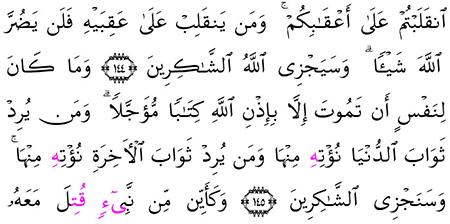 ٱنقَلَبْتُمْ عَلَىٰٓ أَعْقَـٰبِكُمْ ۚ وَمَن يَنقَلِبْ عَلَىٰ عَقِبَيْهِ فَلَن يَضُرَّ
ٱللَّهَ شَيْـًٔا ۗ وَسَيَجْزِى ٱللَّهُ ٱلشَّـٰكِرِينَ ١٤٤ وَمَا كَانَ
لِنَفْسٍ أَن تَمُوتَ إِلَّا بِإِذْنِ ٱللَّهِ كِتَـٰبًا مُّؤَجَّلًا ۗ وَمَن يُرِدْ
ثَوَابَ ٱلدُّنْيَا نُؤْتِهِ مِنْهَا وَمَن يُرِدْ ثَوَابَ ٱلْـَٔاخِرَةِ نُؤْتِهِ مِنْهَا ۚ
وَسَنَجْزِى ٱلشَّـٰكِرِينَ ١٤٥ وَكَأَيِّن مِّن نَّبِىٓءٍ قُتِلَ مَعَهُۥ